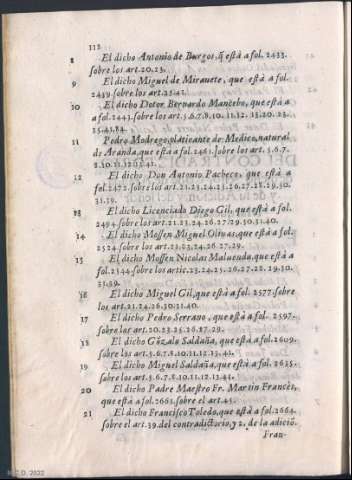 112
8 El dicho Antonio de Burgos, q̃ està a fol. 2433.
sobre los art. 20.23.
9 El dicho Miguel de Miranete, que està a fol.
2439. sobre los art. 25.41.
10 El dicho Dotor Bernardo Mancebo, que està a
a fol. 2443. sobre los art. 3.6.7.8.10.11.12.13.20.23.
25.41.84.
11 Pedro Modrego, platicante de Medico, natural
de Aranda, que està a fol. 2461. sobre los art. 3.6.7.
8.10.11.1203.41.
12 El dicho Don Antonio Pacheco, que està a
fol. 2472. sobre los art. 21.23.24.25.26.27.28.29.30.
31.39.
13 El dicho Licenciado Diego Gil, que està a fol.
2494. sobre los art. 21.23.24.26.27.29.30.31.40.
14 El dicho Mossen Miguel Oliuas, que està a fol.
2524. sobre los art. 23.23.24.26.27.29.
15 El dicho Mossen Nicolas Maluenda, que està a
fol. 2544. sobre los artic. 23.24.25.26.27.28.29.30.
31.39.
16 El dicho Miguel Gil, que està a fol. 2577. sobre
los art. 21.24.26.30.31.40.
17 El dicho Pedro Serrano, que està a fol. 2597.
sobre los art. 20.23.25.26.27.29.
18 El dicho Gõzalo Saldaña, que està a fol. 2609.
sobre los art. 3.6.7.8.10.11.12.13.41.
19 El dicho Miguel Saldaña, que està a fol. 2625.
sobre los art. 3.6.7.8.10.11.12.13.41.
20 El dicho Padre Maestro Fr. Martin Francès,
que està a fol. 2663. sobre el art. 41.
21 El dicho Francisco Toledo, que està a fol. 2664.
sobre el art. 39. del contradictorio, y 2. de la adició.
Fran-